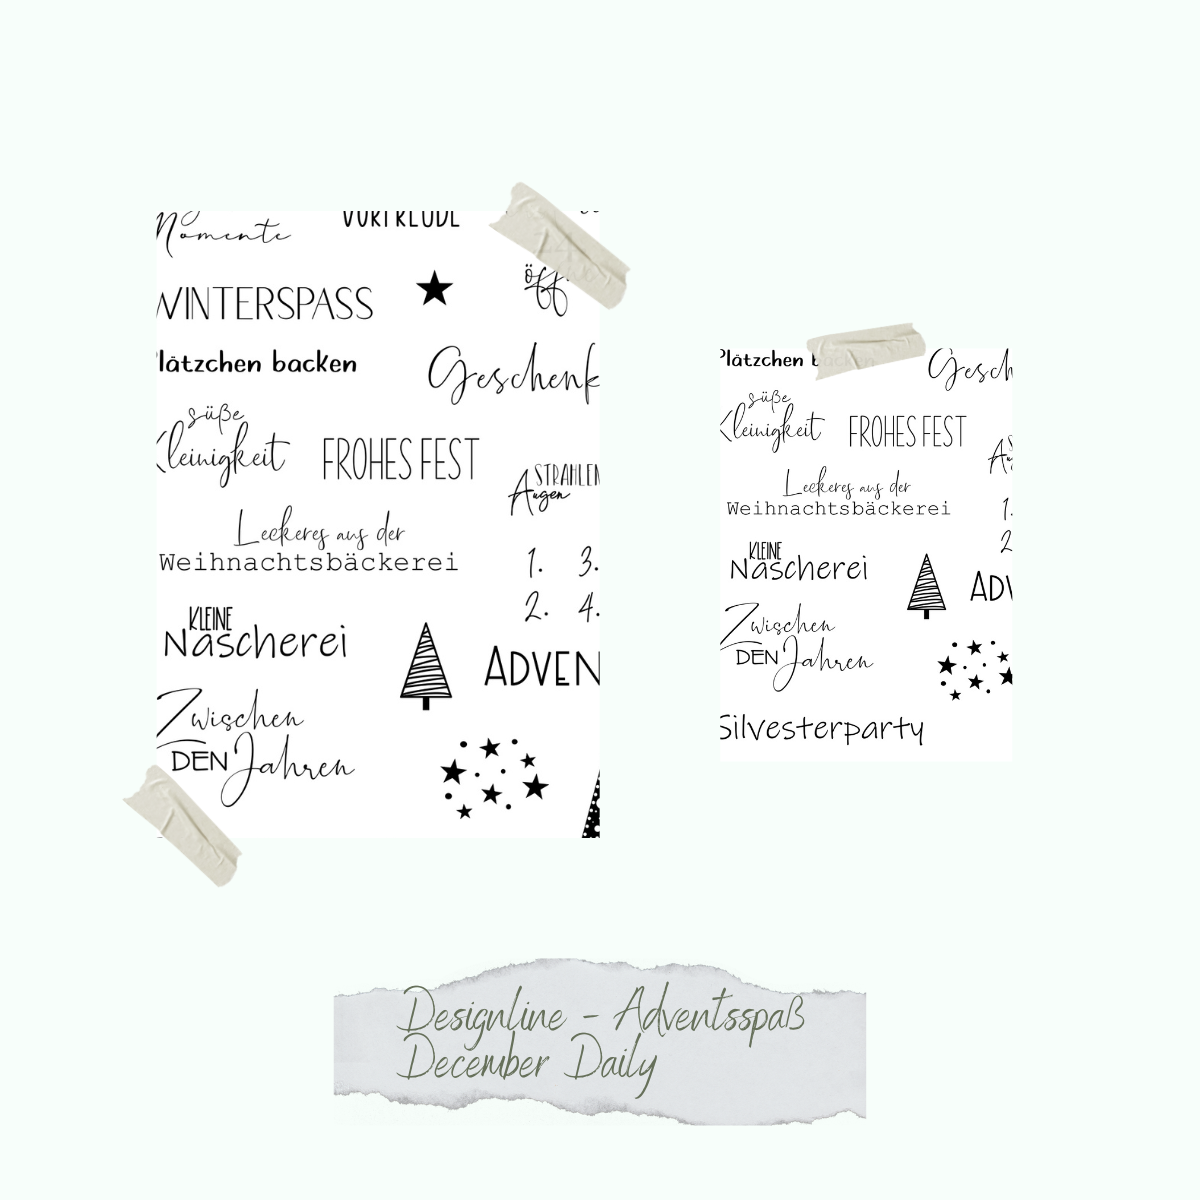 Momente
VORFREUDE
WINTERSPASS
Plätzchen backen
Geschenk
süße
Kleinigkeit
FROHES FEST
STRAHLEN
Augen
Leckeres aus der
Weihnachtsbäckerei
1. 3.
2. 4.
KLEINE
Nascherei
ADVEN
Zwischen
DEN Jahren
Plätzchen
Gesch
süße
Kleinigkeit
FROHES FEST
Leckeres aus der
Weihnachtsbäckerei
1.
2
KLEINE
Nascherei
ADV
Zwischen
DEN Jahren
Silvesterparty
Designline - Adventsspaß
December Daily